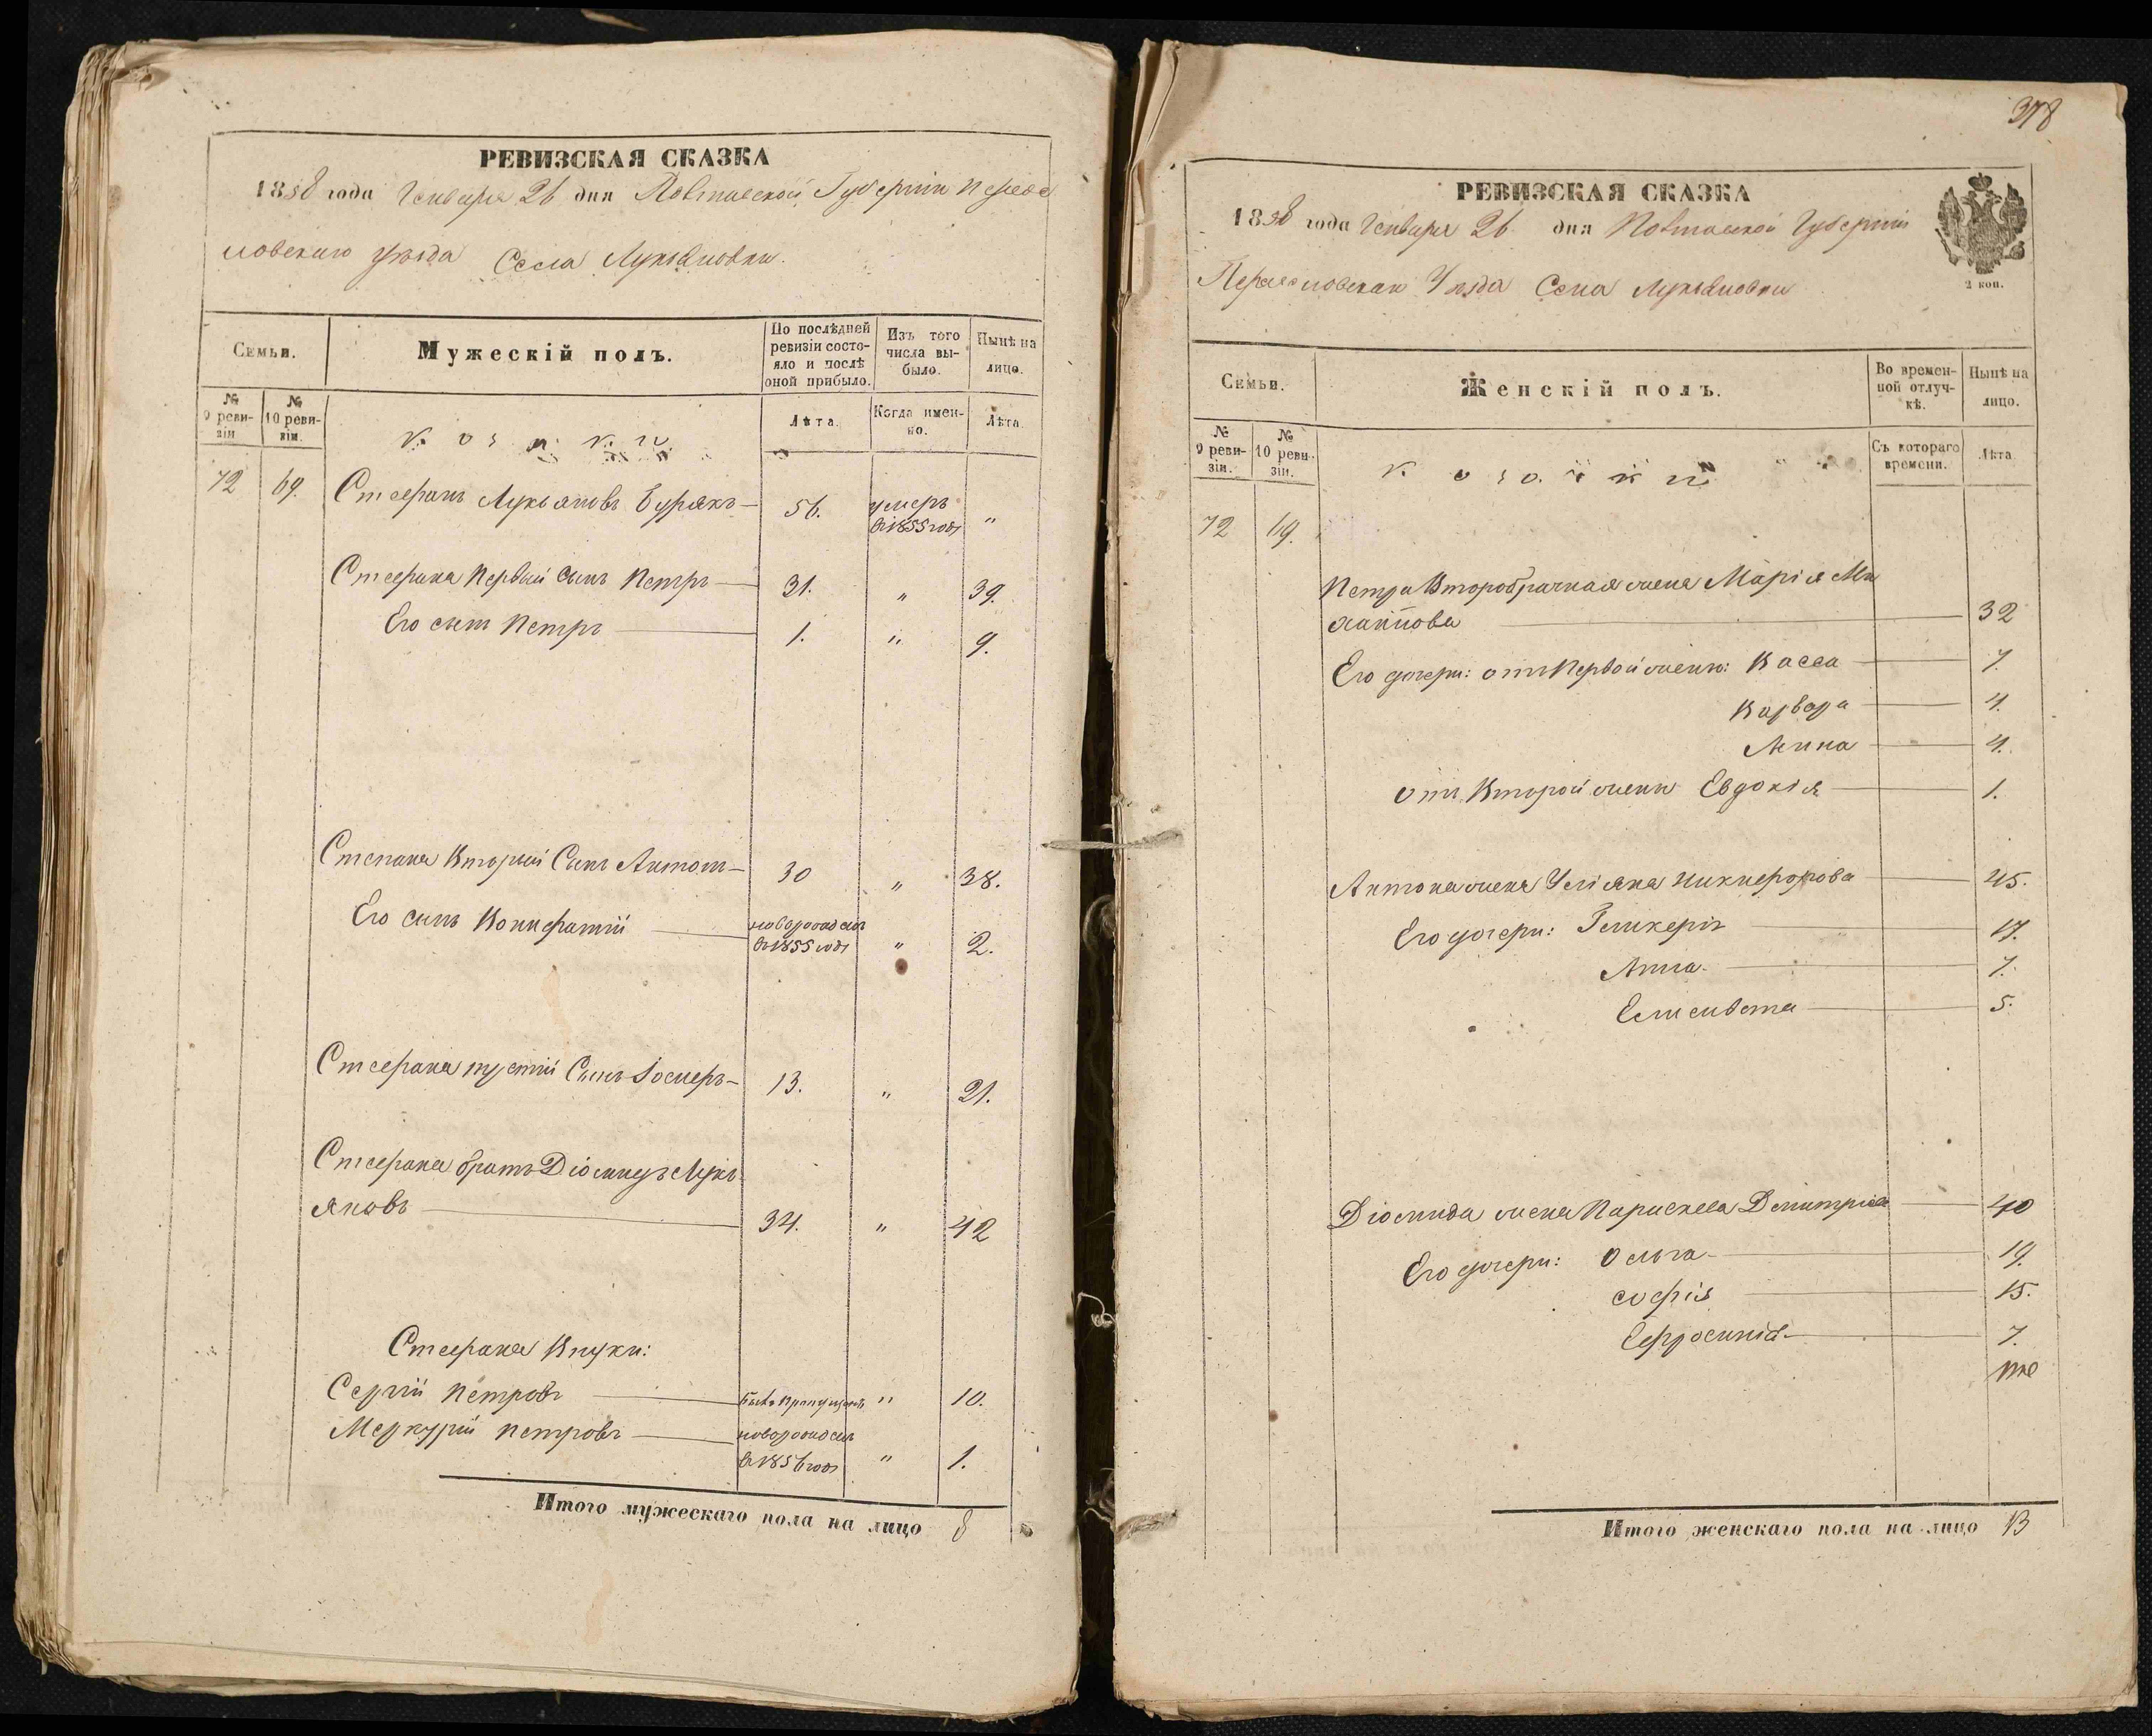 РЕВИЗСКАЯ СКАЗКА
1858 года Генваря 26 дня Полтавской Губерніи Переяс
ловскаго уѣзда Села Лукьяновки.
Семьи.
Мужескій полъ.
По послѣдней ревизіи состояло и послѣ оной прибыло.
Изъ того числа выбыло.
Нынѣ на лицо.
№ 9 ревизіи
№ 10 ревизіи.
козаки
Лѣта.
Когда именно.
Лѣта.
72 69. Стефанъ Лукьяновъ Бурякъ 56. умеръ в 1855 годѣ "
Стефана Первый сынъ Петръ 31. " 39.
Его сынъ Петръ 1. " 9.
Степана Вторый Сынъ Антонъ 30 " 38.
Его сынъ Вонифатій новорожденъ в 1855 годѣ " 2.
Стефана третий Сынъ Іосифъ 13. " 21.
Стефана братъ Діомидъ Лукь
яновъ 34. " 42
Стефана Внуки:
Сергій Петровъ былъ пропущенъ " 10.
Меркурій Петровъ новорожденъ
в 1856 годѣ " 1.
Итого мужескаго пола на лицо 8
378
РЕВИЗСКАЯ СКАЗКА
1858 года Генваря 26 дня Полтавской Губерніи
Переясловскаго Уѣзда Села Лукьяновки
2 коп.
Семьи.
Женскій полъ.
Во временной отлучкѣ.
Нынѣ на лицо.
№ 9 ревизіи.
№ 10 ревизіи.
козачки
Съ котораго времени.
Лѣта
72 69.
Петра Второбрачная жена Марія
32
Его дочери: отъ Первой жены: Васса 7.
Варвара 4.
Анна 4.
отъ Второй жены Евдокія 1.
Антона жена Уліяна Никифорова 45.
Его дочери: Гликерія 17.
Анна 7.
Елисавета 5.
Діомида жена Параскева Дмитріева 40
Его дочери: Ольга 19.
Софія 15.
Ефросинія 7.
Итого женскаго пола на лицо 13